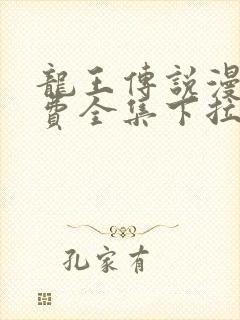 龍王傳說漫
費全集下拉
孔家有